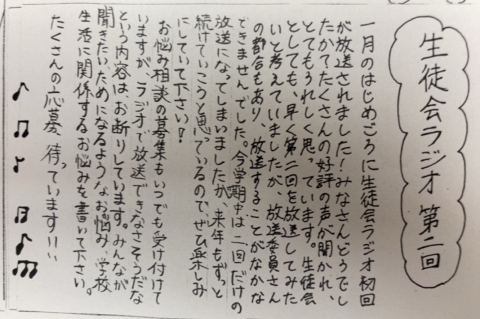 生徒会ラジオ 第二回
一月のはじめごろに生徒会ラジオ初回
が放送されました!みなさんどうでし
たか?たくさんの好評の声が聞かれ、
とてもうれしく思っています。生徒会
としても、早く第二回を放送してみた
いと考えていましたが、放送委員さん
の都合もあり、放送することがなかな
かできませんでした。今学期中は二回だけの
放送になってしまいましたが、来年もずっと
続けていこうと思っているので、ぜひ楽しみ
にしていて下さい!
お悩み相談の募集もいつでも受け付けて
いますが、ラジオで放送できなさそうだな
という内容はお断りしています。みんなが
聞きたい、ためになるようなお悩み、学校
生活に関係するお悩みを書いて下さい。
たくさんの応募 待っています!!